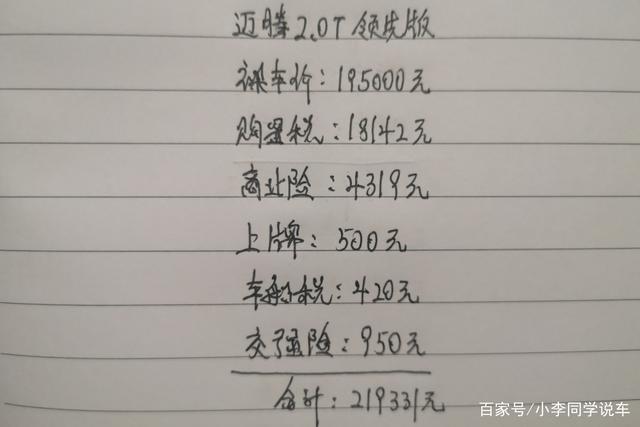 迈腾2.0T 领先版
裸车价：195000元
购置税：18142元
商业险：4319元
上牌：500元
车船税：420元
交强险：950元
合计：219331元
百家号/小李同学说车